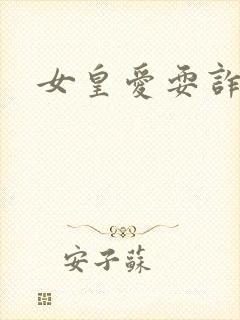 女皇愛耍詐
安子蘇